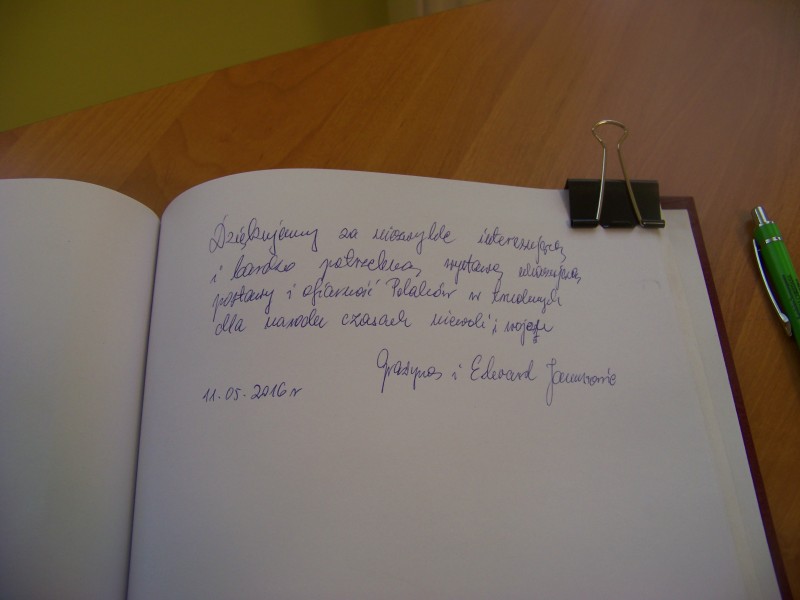 Dziękujemy za niezwykle interesującą
i bardzo potrzebną wystawę ukazującą
postawy i ofiarność Polaków w trudnych
dla narodu czasach niewoli i wojen
Grażyna i Edward
11.05.2016 r